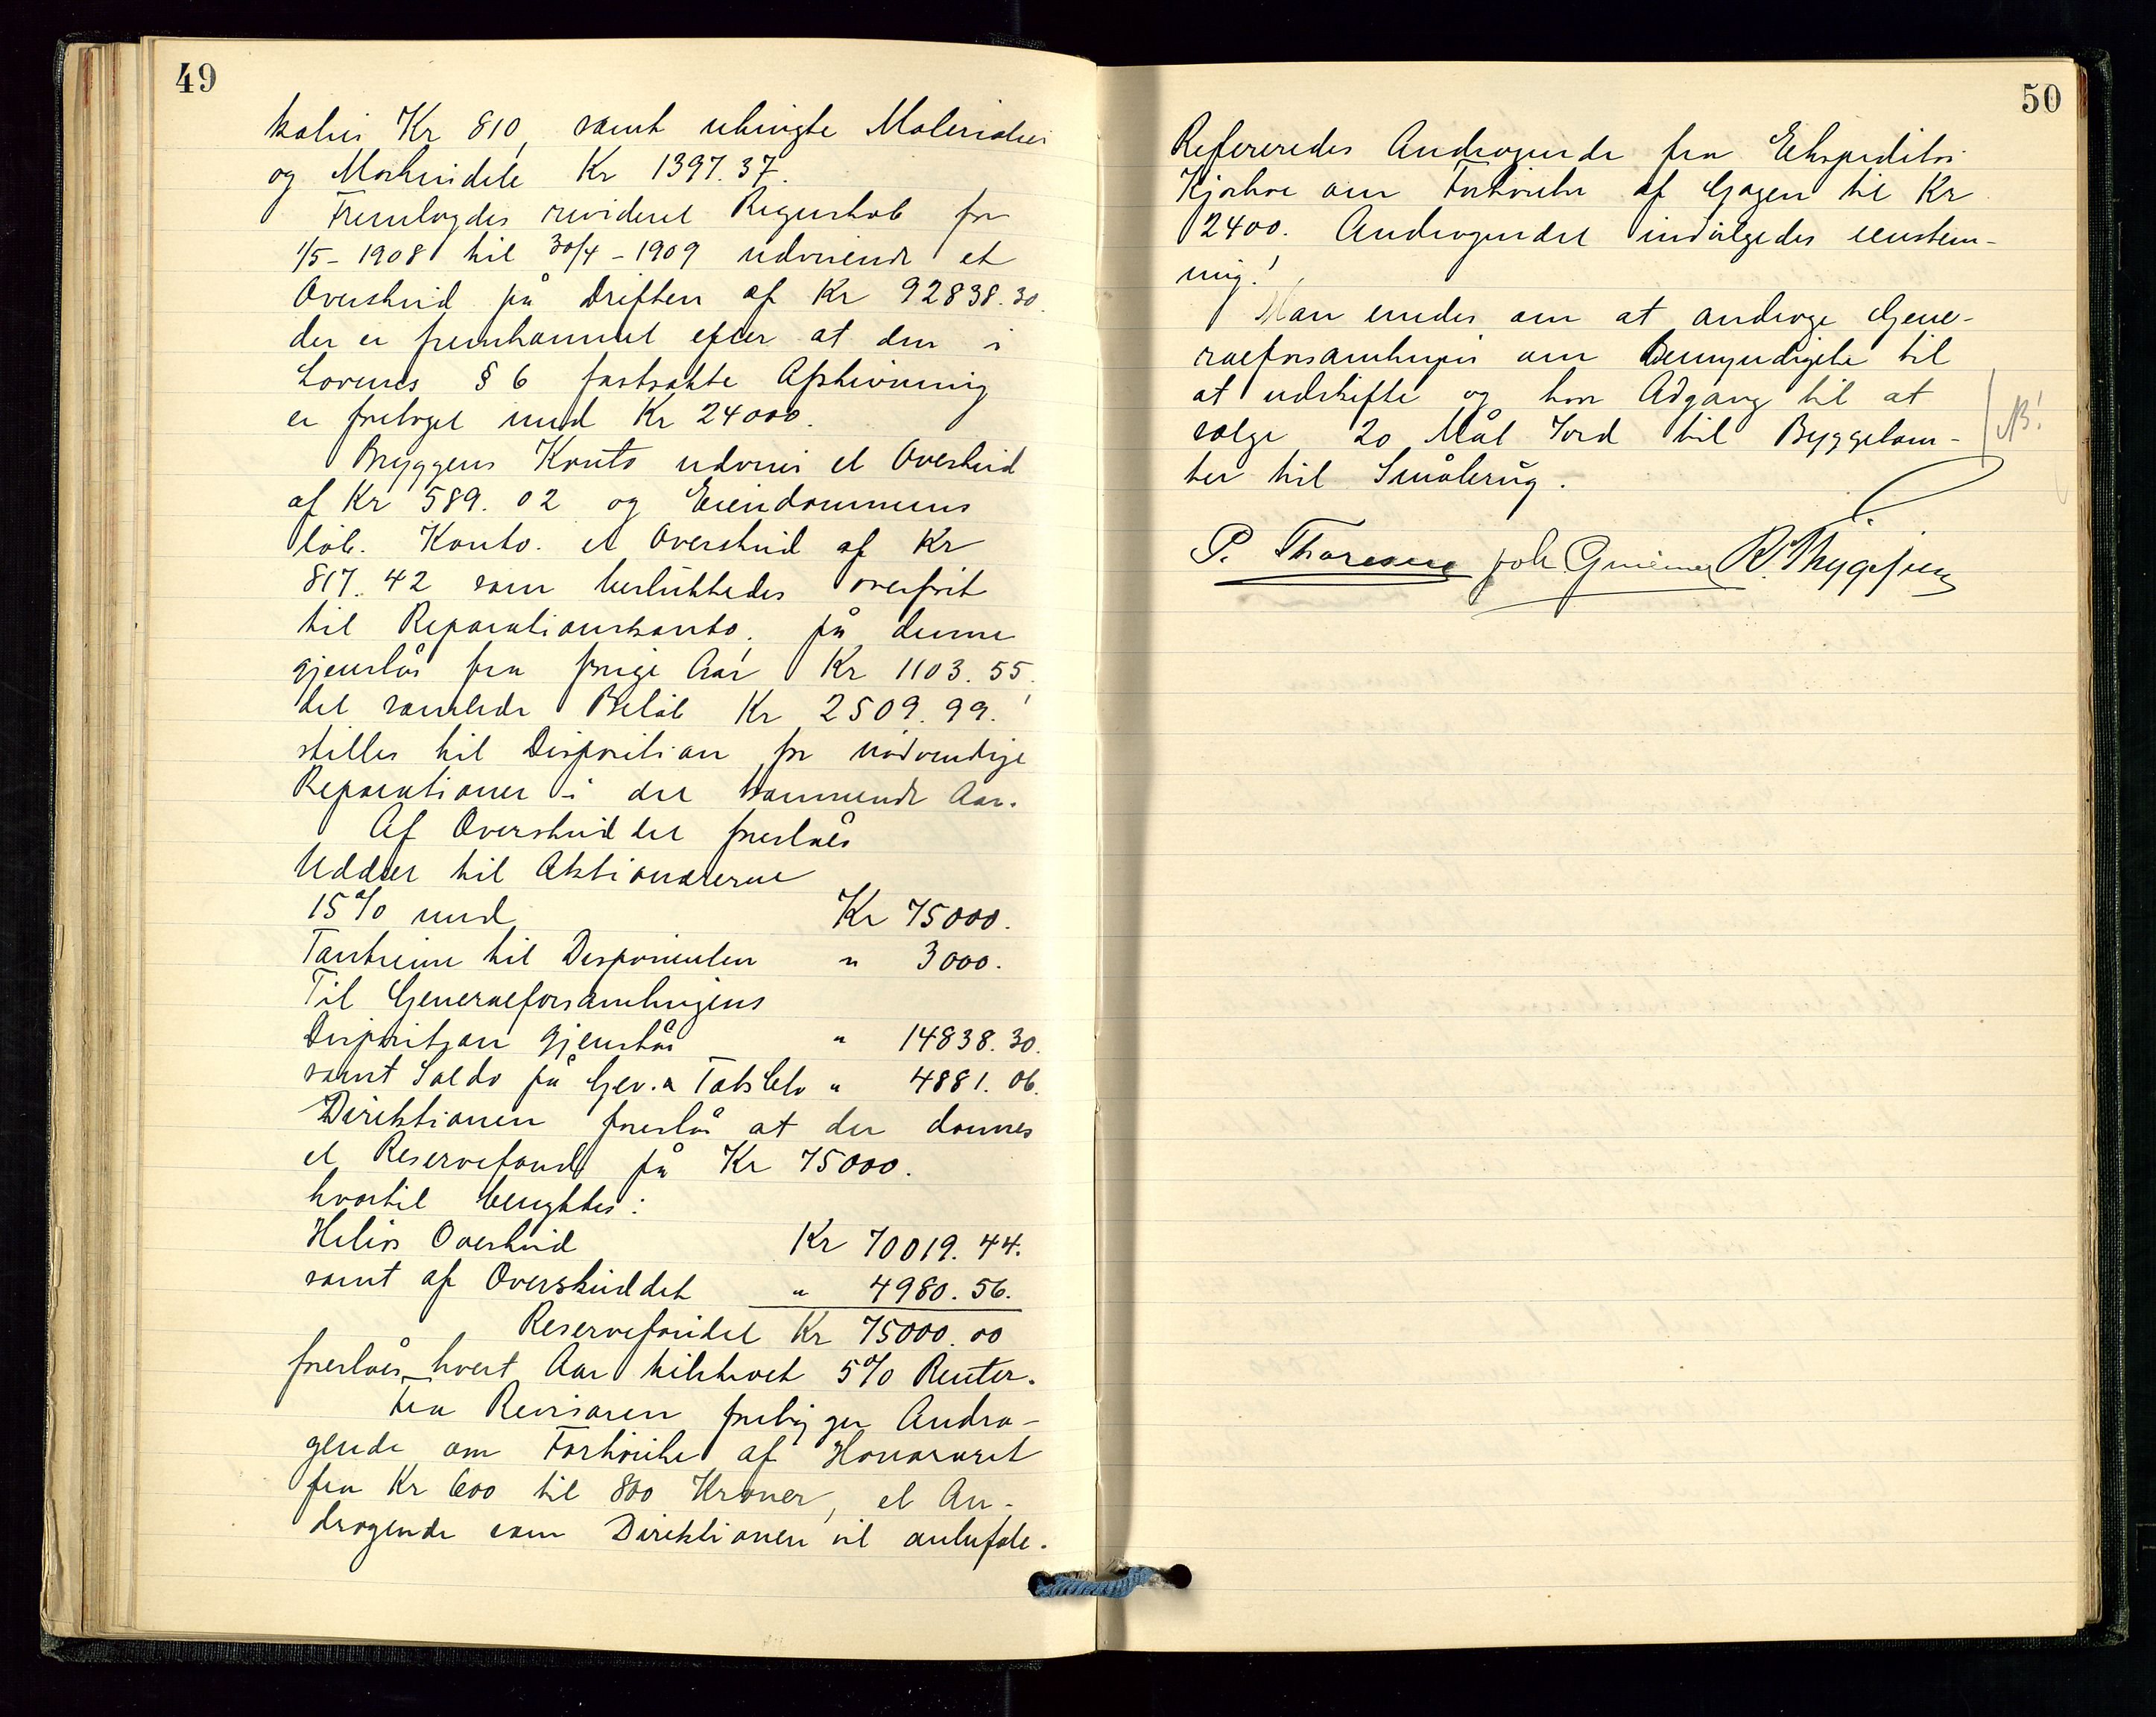 49
Kr 810, samt Materialier
og Maskindele Kr 1397.37.
Fremlagdes revideret Regnskab for
1/5 - 1908 til 30/4 - 1909 udvisende et
Overskud på Driften af Kr 92838.30.
der er fremkommet efter at den i
Lovenes § 6 fastsatte Afskrivning
er foretaget med Kr 24000.
Bryggens Konto udviser et Overskud
af Kr 589.02 og Eiendommens
løb. Konto. et Overskud af Kr
817.42 som besluttedes overført
til Reparationskonto, på denne
gjenstår fra forrige Aar Kr 1103.55.
det samlede Beløb Kr 2509.99.
stilles til Disposition for nødvendige
Reparationer i det kommende Aar.
Af Overskuddet foreslåes
Uddelt til Aktionærerne
15% med Kr 75000.
Tantieme til Disponenten " 3000.
Til Generalforsamlingens
Disposition gjenstår " 14838.30.
samt Saldo på Gev. & Tabs Cto " 4881.06.
Direktionen foreslår at der dannes
et Reservefond på Kr 75000.
hvortil benyttes:
Helios Overskud Kr 70019.44.
samt af Overskuddet " 4980.56.
Reservefondet Kr 75000.00
foreslåes hvert Aar tilskrevet 5% Renter.
Fra Revisoren foreligger Andra-
gende om Forhøielse af Honoraret
fra Kr 600 til 800 Kroner, et An-
dragende som Direktionen vil anbefale.
50
Refereredes Andragende fra Ekspeditør
om Forhøielse af Gagen til Kr
2400. Andragendet indvilgedes eenstem-
mig!
Man enedes om at andrage Gene-
ralforsamlingen om Bemyndigelse til
at udskifte og have Adgang til at
sælge 20 Mål Jord til Byggetom-
ter til Småbrug.
NB!
P. Thoresen Joh. R. Thygesen